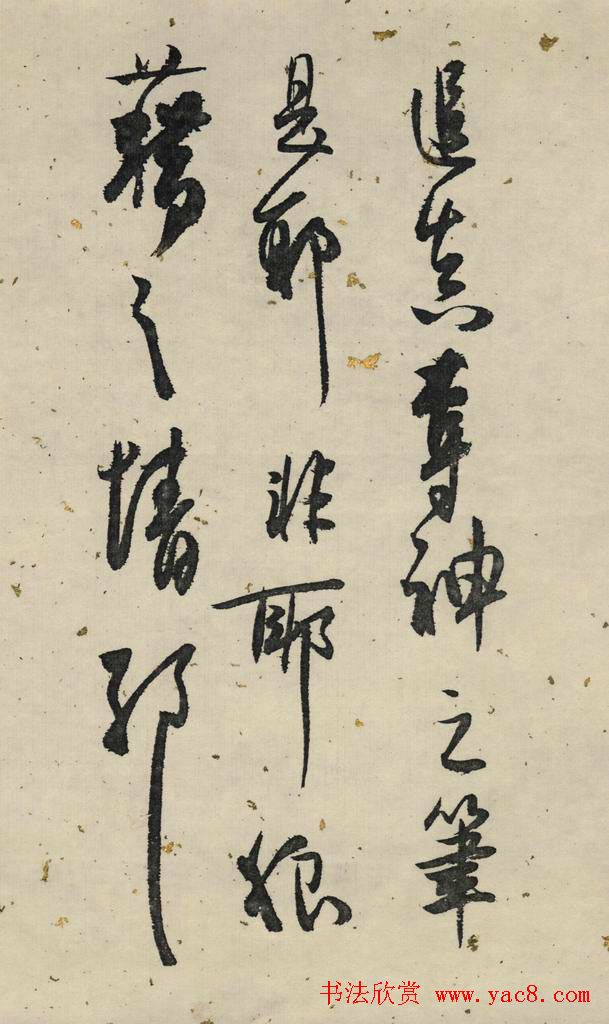 追真奪神之筆
是耶非耶狼
藉之情
书法欣赏 www.yac8.com